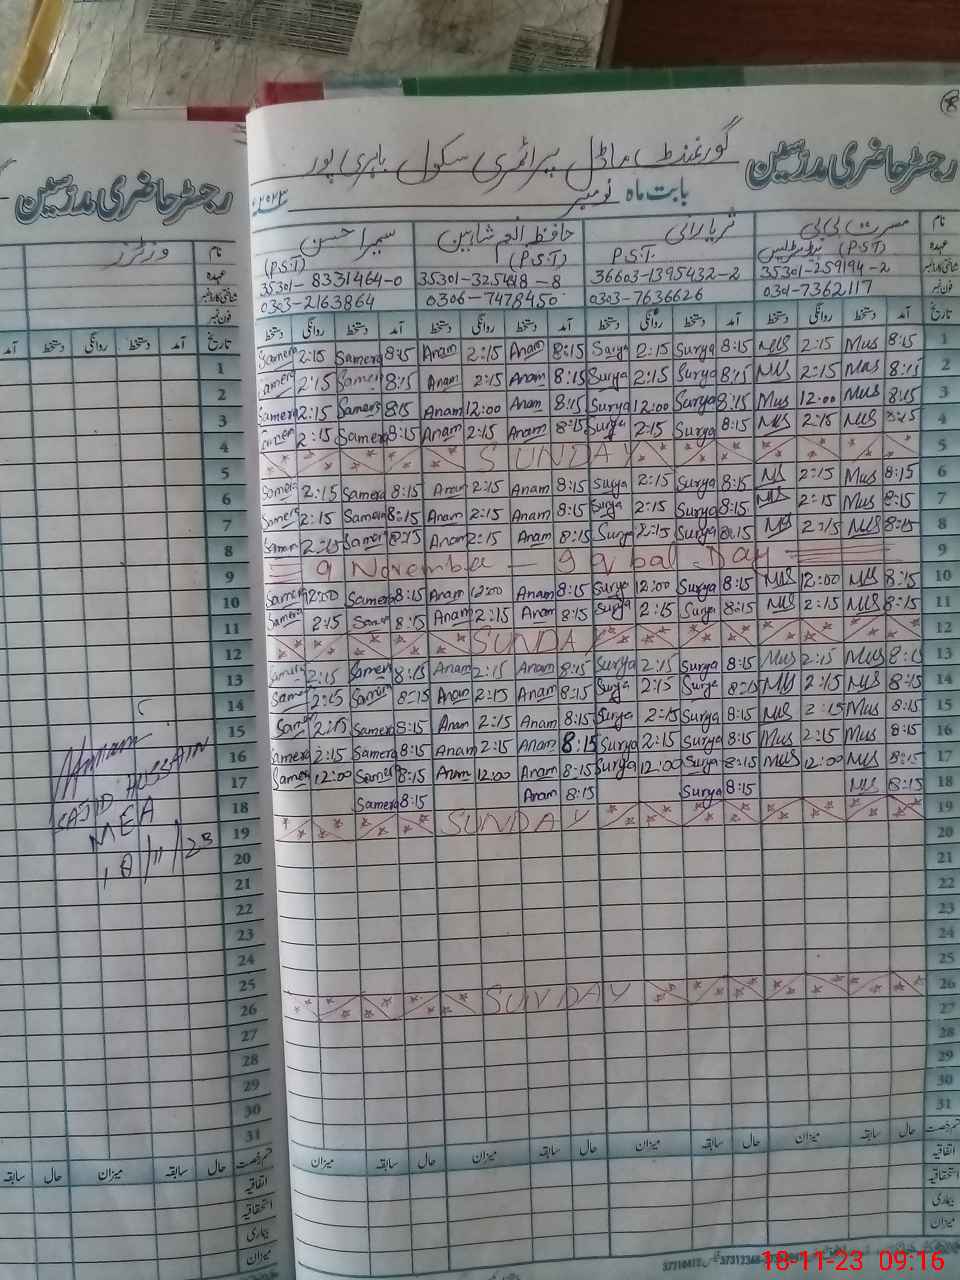 رجسٹر حاضری مدرسین
گورنمنٹ ماڈل پرائمری سکول
بابت ماہ نومبر ۲۰۲۳ء
نام مسرت بی بی ثریا رانی حافظ انعم شاہین سمیرا حسن
عہدہ (P.S.T) P.S.T. (P.S.T) (P.S.T)
شناختی کارڈ نمبر 35301-259194-2 36603-1395432-2 35301-325418-8 35301-8331464-0
فون نمبر 0304-7362117 0303-7636626 0306-7478450 0303-2163864
تاریخ آمد دستخط روانگی دستخط آمد دستخط روانگی دستخط آمد دستخط روانگی دستخط آمد دستخط روانگی دستخط
Samera 2:15 Samera 8:15 Anam 2:15 Anam 8:15 Surya 2:15 Surya 8:15 Mus 2:15 Mus 8:15 1
Samera 2:15 Samera 8:15 Anam 2:15 Anam 8:15 Surya 2:15 Surya 8:15 Mus 2:15 Mus 8:15 2
Samera 2:15 Samera 8:15 Anam 12:00 Anam 8:15 Surya 12:00 Surya 8:15 Mus 12:00 Mus 8:15 3
Samera 2:15 Samera 8:15 Anam 2:15 Anam 8:15 Surya 2:15 Surya 8:15 Mus 2:15 Mus 8:15 4
SUNDAY 5
Samera 2:15 Samera 8:15 Anam 2:15 Anam 8:15 Surya 2:15 Surya 8:15 Mus 2:15 Mus 8:15 6
Samera 2:15 Samera 8:15 Anam 2:15 Anam 8:15 Surya 2:15 Surya 8:15 Mus 2:15 Mus 8:15 7
Samera 2:15 Samera 8:15 Anam 2:15 Anam 8:15 Surya 2:15 Surya 8:15 Mus 2:15 Mus 8:15 8
9 Novembe — 9qbal Day 9
Samera 12:00 Samera 8:15 Anam 12:00 Anam 8:15 Surya 12:00 Surya 8:15 Mus 12:00 Mus 8:15 10
Samera 2:15 Samera 8:15 Anam 2:15 Anam 8:15 Surya 2:15 Surya 8:15 Mus 2:15 Mus 8:15 11
SUNDAY 12
Samera 2:15 Samera 8:15 Anam 2:15 Anam 8:15 Surya 2:15 Surya 8:15 Mus 2:15 Mus 8:15 13
Samera 2:15 Samera 8:15 Anam 2:15 Anam 8:15 Surya 2:15 Surya 8:15 Mus 2:15 Mus 8:15 14
Samera 2:15 Samera 8:15 Anam 2:15 Anam 8:15 Surya 2:15 Surya 8:15 Mus 2:15 Mus 8:15 15
Samera 2:15 Samera 8:15 Anam 2:15 Anam 8:15 Surya 2:15 Surya 8:15 Mus 2:15 Mus 8:15 16
Samera 12:00 Samera 8:15 Anam 12:00 Anam 8:15 Surya 12:00 Surya 8:15 Mus 12:00 Mus 8:15 17
Samera 8:15 Anam 8:15 Surya 8:15 Mus 8:15 18
SUNDAY 19
20
21
22
23
24
25
SUNDAY 26
27
28
29
30
31
حال سابقہ میزان حال سابقہ میزان حال سابقہ میزان حال سابقہ میزان
اتفاقیہ
استحقاقیہ
بیماری
میزان
رجسٹر حاضری مدرسین
نام وزیٹرز
عہدہ
شناختی کارڈ نمبر
فون نمبر
تاریخ آمد دستخط روانگی دستخط آمد
1
2
3
4
5
6
7
8
9
10
11
12
13
14
15
16
17
18
19
20
21
22
23
24
25
26
27
28
29
30
31
SAJID HUSSAIN
MEA
18/11/23
حال سابقہ میزان حال سابقہ
اتفاقیہ
استحقاقیہ
بیماری
میزان
18-11-23 09:16